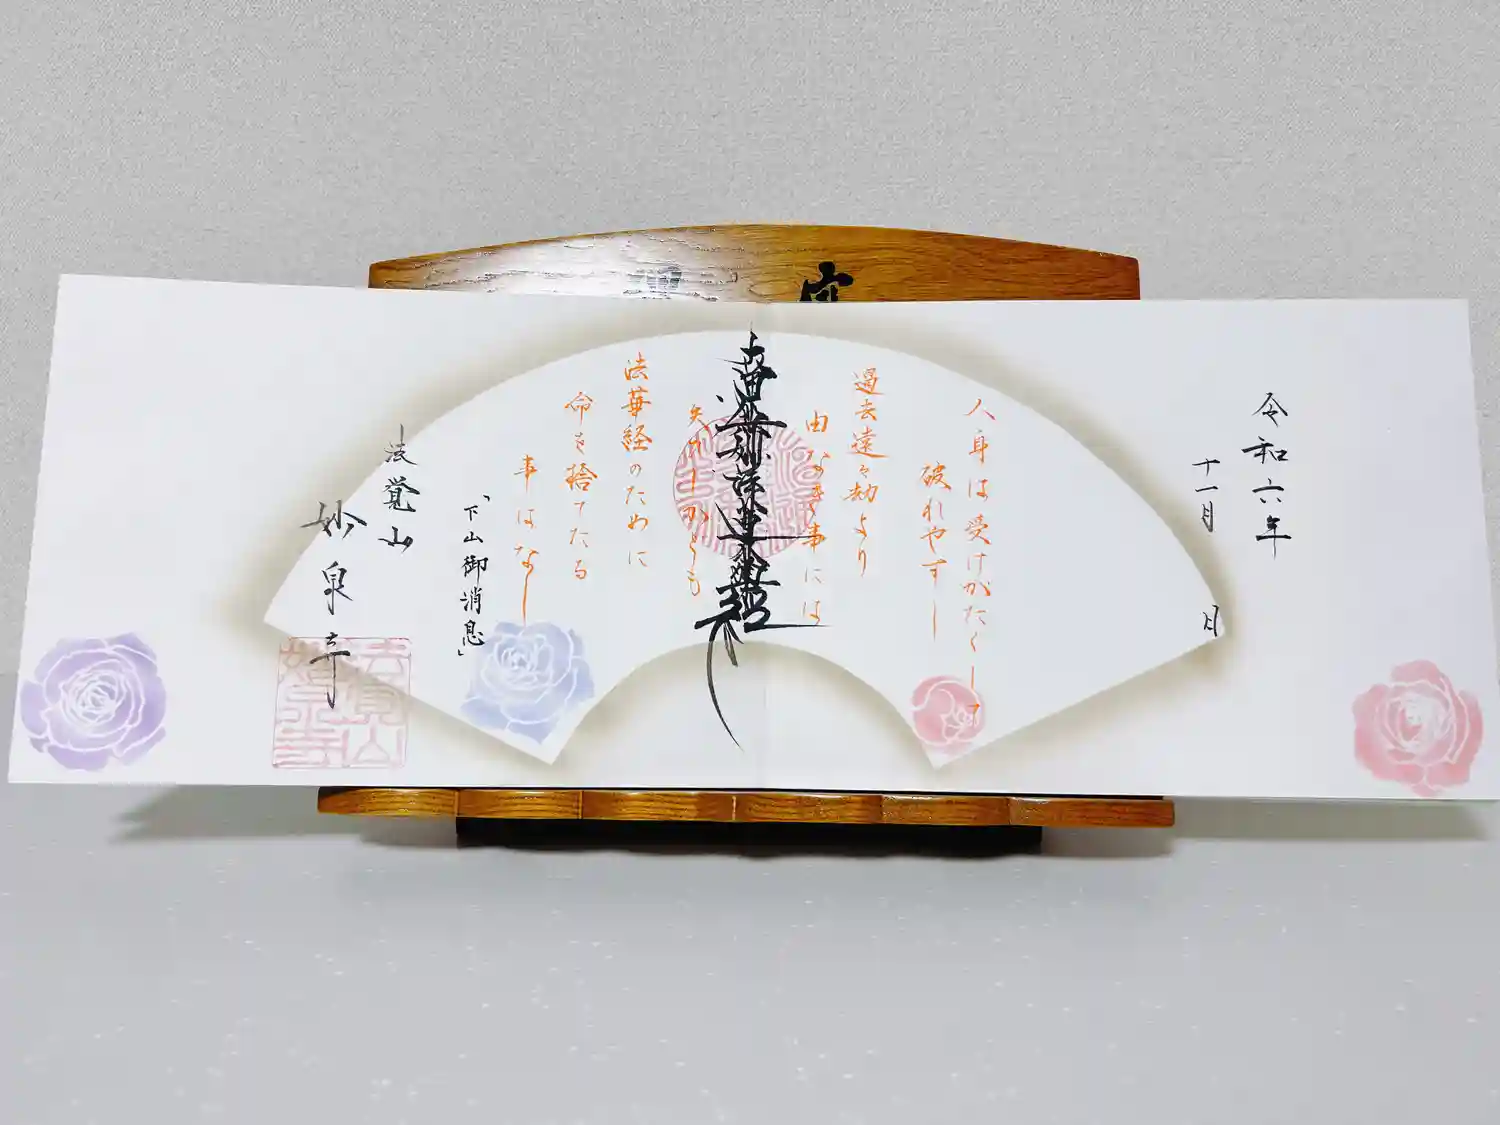 令和六年
十一月 日
人身は受けがたくして
破れやすし
過去遠々劫より
由なき事には
失ひしかども
法華経のために
命を捨てたる
事はなし
「下山御消息」
南無妙法蓮華経
法覚山
妙泉寺
法覚山
妙泉寺